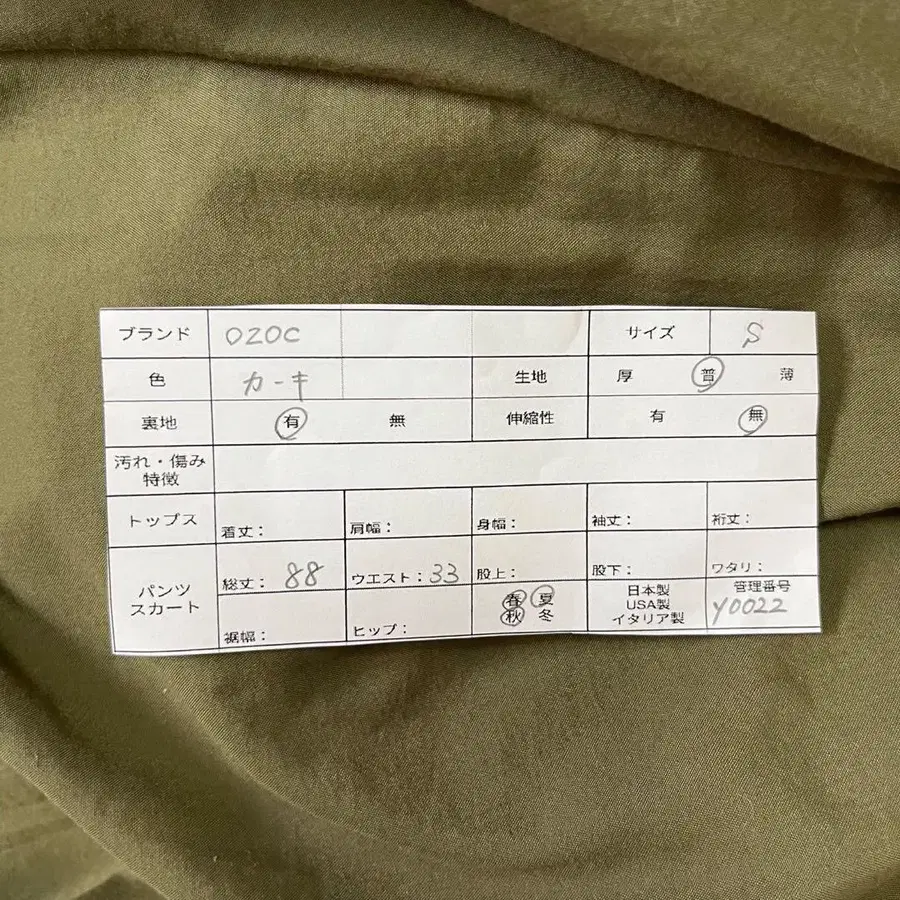 ブランド OZOC サイズ S
色 カーキ 生地 厚 普 薄
裏地 有 無 伸縮性 有 無
汚れ・傷み
特徴
トップス 着丈： 肩幅： 身幅： 袖丈： 裄丈：
パンツ
スカート
総丈： 88 ウエスト：33 股上： 股下： ワタリ：
裾幅： ヒップ：
春 夏
秋 冬
日本製
USA製
イタリア製
管理番号
Y0022